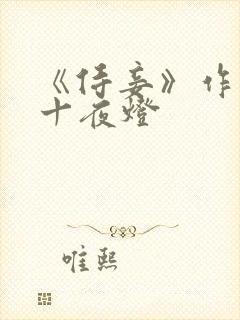 《侍妾》作
十夜燈
唯熙